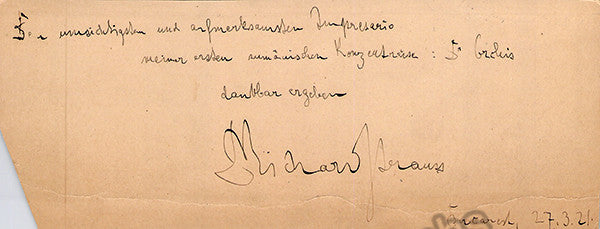 umsichtigsten und aufmerksamsten Impresario
meiner ersten rumänischen Konzertreise :
dankbar ergeben
Richard Strauss
Bucarest, 27.3.21.